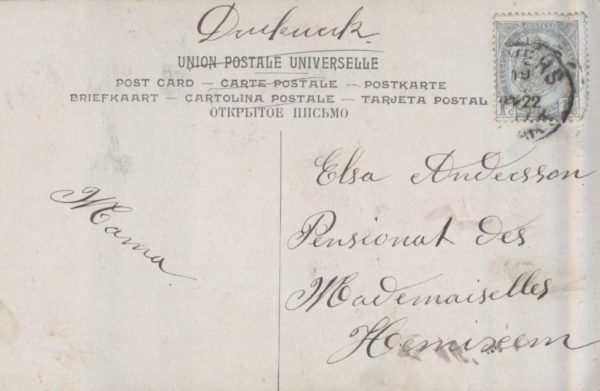 Drukwerk
UNION POSTALE UNIVERSELLE
POST CARD — CARTE POSTALE — POSTKARTE
BRIEFKAART — CARTOLINA POSTALE — TARJETA POSTAL
ОТКРЫТОЕ ПИСЬМО
22
Elsa Andersson
Pensionat des
Mademaiselles
Hemixem
Mama